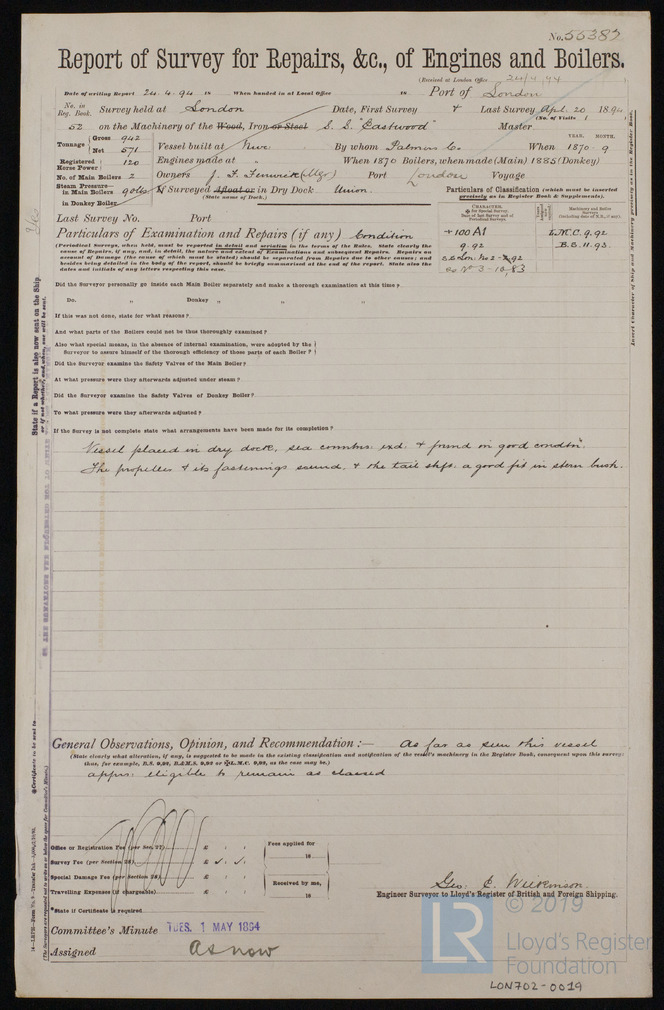 No. 55387
Report of Survey for Repairs, &c., of Engines and Boilers.
(Received at London Office 24/4/94)
Date of writing Report 24.4.94 18 When handed in at Local Office 18 Port of London
No. in Reg. Book. Survey held at London Date, First Survey + Last Survey Apl. 20 1894
(No. of Visits 1 )
52 on the Machinery of the Wood, Iron or Steel S.S. "Eastwood" Master
Tonnage Gross 942 Net 571 Vessel built at Nwc By whom Palmers Co. When YEAR. 1870 MONTH. 9
Registered Horse Power 120 Engines made at " When 1870 Boilers, when made (Main) 1885 (Donkey)
No. of Main Boilers 2 Owners J. T. Fenwick (Mgr) Port London Voyage
Steam Pressure— in Main Boilers 90 lb If Surveyed Afloat or in Dry Dock Union.
(State name of Dock.)
in Donkey Boiler
Particulars of Classification (which must be inserted precisely as in Register Book & Supplements).
Last Survey No. Port
CHARACTER.
Machinery and Boiler Surveys
Particulars of Examination and Repairs (if any) Condition
+ 100 A1 L.M.C. 9.92
9.92 B.S. 11.93
(Periodical Surveys, when held, must be reported in detail and seriatim in the terms of the Rules. State clearly the
cause of Repairs, if any, and, in detail, the nature and extent of Examinations and subsequent Repairs. Repairs on
account of Damage (the cause of which must be stated) should be separated from Repairs due to other causes; and
besides being detailed in the body of the report, should be briefly summarised at the end of the report. State also the
dates and initials of any letters respecting this case.
Did the Surveyor personally go inside each Main Boiler separately and make a thorough examination at this time?
Do. " Donkey " " "
If this was not done, state for what reasons?
And what parts of the Boilers could not be thus thoroughly examined?
Also what special means, in the absence of internal examination, were adopted by the
Surveyor to assure himself of the thorough efficiency of those parts of each Boiler?
Did the Surveyor examine the Safety Valves of the Main Boiler?
At what pressure were they afterwards adjusted under steam?
Did the Surveyor examine the Safety Valves of Donkey Boiler?
To what pressure were they afterwards adjusted?
If the Survey is not complete state what arrangements have been made for its completion?
Vessel placed in dry dock, sea conntns. exd. + found in good condtn.
The propeller + its fastenings sound, + the tail shft. a good fit in stern bush.
State if a Report is also now sent on the Ship.
Insert Character of Ship and Machinery precisely as in the Register Book.
General Observations, Opinion, and Recommendation :— As far as seen this vessel
(State clearly what alteration, if any, is suggested to be made in the existing classification and notification of the vessel's machinery in the Register Book, consequent upon this survey:
thus, for example, B.S. 9,92, B.&M.S. 9,92 or L.M.C. 9,92, as the case may be.)
apprs. eligible to remain as classed
Office or Registration Fee (per Sec. 27) £ : :
Survey Fee (per Section 28) £
Special Damage Fee (per Section 28) £ : :
Travelling Expenses (if chargeable) £ : :
Fees applied for 18
Received by me, 18
*State if Certificate is required
Geo. E. Wilkinson.
Engineer Surveyor to Lloyd's Register of British and Foreign Shipping.
Committee's Minute TUES. 1 MAY 1894
Assigned As now
© 2019
LR
Lloyd's Register
Foundation
LON702-0019